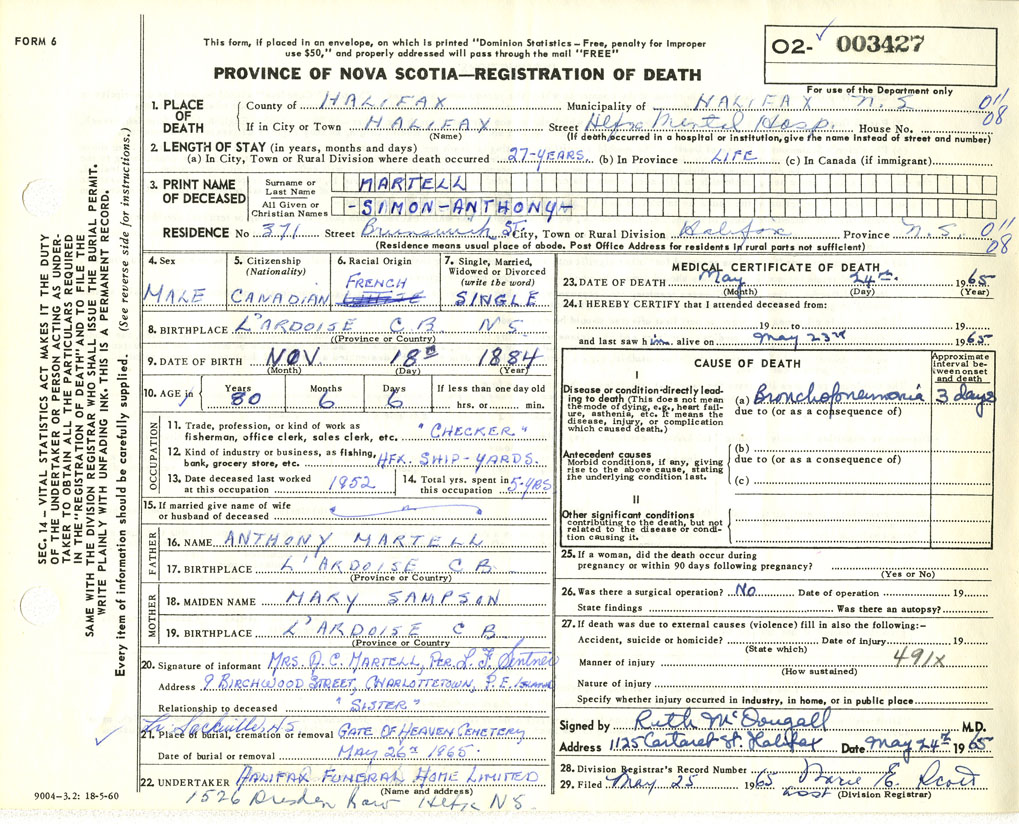 FORM 6
This form, if placed in an envelope, on which is printed "Dominion Statistics – Free, penalty for improper
use $50," and properly addressed will pass through the mail "FREE"
PROVINCE OF NOVA SCOTIA—REGISTRATION OF DEATH
O2- 003427
For use of the Department only
1. PLACE OF DEATH
County of HALIFAX Municipality of HALIFAX N.S 011
If in City or Town HALIFAX Street Hfx Mental Hosp. House No. 08
(Name) (If death occurred in a hospital or institution, give the name instead of street and number)
2. LENGTH OF STAY (in years, months and days)
(a) In City, Town or Rural Division where death occurred 27-YEARS. (b) In Province LIFE (c) In Canada (if immigrant)
3. PRINT NAME OF DECEASED
Surname or Last Name MARTELL
All Given or Christian Names -SIMON-ANTHONY-
RESIDENCE No 371 Street Brunswick St City, Town or Rural Division Halifax Province N.S. 011
(Residence means usual place of abode. Post Office Address for residents in rural parts not sufficient) 08
4. Sex
MALE
5. Citizenship
(Nationality)
CANADIAN
6. Racial Origin
FRENCH
7. Single, Married, Widowed or Divorced
(write the word)
SINGLE
8. BIRTHPLACE L'ARDOISE C B N S
(Province or Country)
9. DATE OF BIRTH NOV 18th 1884
(Month) (Day) (Year)
10. AGE in
Years Months Days If less than one day old
80 6 6 hrs. or min.
OCCUPATION
11. Trade, profession, or kind of work as
fisherman, office clerk, sales clerk, etc. "CHECKER"
12. Kind of industry or business, as fishing,
bank, grocery store, etc. HFX. SHIP-YARDS.
13. Date deceased last worked
at this occupation 1952
14. Total yrs. spent in
this occupation 5-YRS
15. If married give name of wife
or husband of deceased
FATHER
16. NAME ANTHONY MARTELL
17. BIRTHPLACE L'ARDOISE C B.
(Province or Country)
MOTHER
18. MAIDEN NAME MARY SAMPSON
19. BIRTHPLACE L'ARDOISE C B
(Province or Country)
20. Signature of informant MRS. A. C. MARTELL, PER. L. F. Sentner
Address 9 BIRCHWOOD STREET, CHARLOTTETOWN, P.E. ISLAND
Relationship to deceased "SISTER"
Lr. Sackville, N S
21. Place of burial, cremation or removal GATE OF HEAVEN CEMETERY
Date of burial or removal MAY 26th 1965.
22. UNDERTAKER HALIFAX FUNERAL HOME LIMITED
(Name and address)
1526 Dresden Row Hfx N S.
9004-3.2: 18-5-60
MEDICAL CERTIFICATE OF DEATH
23. DATE OF DEATH May 24th 1965
(Month) (Day) (Year)
24. I HEREBY CERTIFY that I attended deceased from:
19 to 19
and last saw him alive on May 23rd 1965
CAUSE OF DEATH
Approximate interval between onset and death
I
Disease or condition directly leading to death (This does not mean the mode of dying, e.g., heart failure, asthenia, etc. It means the disease, injury, or complication which caused death.)
(a) Bronchopneumonia 3 days
due to (or as a consequence of)
Antecedent causes
Morbid conditions, if any, giving rise to the above cause, stating the underlying condition last.
(b)
due to (or as a consequence of)
(c)
II
Other significant conditions
contributing to the death, but not related to the disease or condition causing it.
25. If a woman, did the death occur during
pregnancy or within 90 days following pregnancy?
(Yes or No)
26. Was there a surgical operation? No Date of operation 19
State findings Was there an autopsy?
27. If death was due to external causes (violence) fill in also the following:–
Accident, suicide or homicide? Date of injury 19
(State which)
Manner of injury 491x
(How sustained)
Nature of injury
Specify whether injury occurred in industry, in home, or in public place
Signed by Ruth McDougall M.D.
Address 1125 Cartaret St. Halifax Date May 24th 1965
28. Division Registrar's Record Number
29. Filed May 25 1965 Marie E. Scott
(Division Registrar)
SEC. 14 – VITAL STATISTICS ACT MAKES IT THE DUTY
OF THE UNDERTAKER OR PERSON ACTING AS UNDER-
TAKER TO OBTAIN ALL THE PARTICULARS REQUIRED
IN THE "REGISTRATION OF DEATH" AND TO FILE THE
SAME WITH THE DIVISION REGISTRAR WHO SHALL ISSUE THE BURIAL PERMIT.
WRITE PLAINLY WITH UNFADING INK. THIS IS A PERMANENT RECORD.
Every item of information should be carefully supplied. (See reverse side for instructions.)